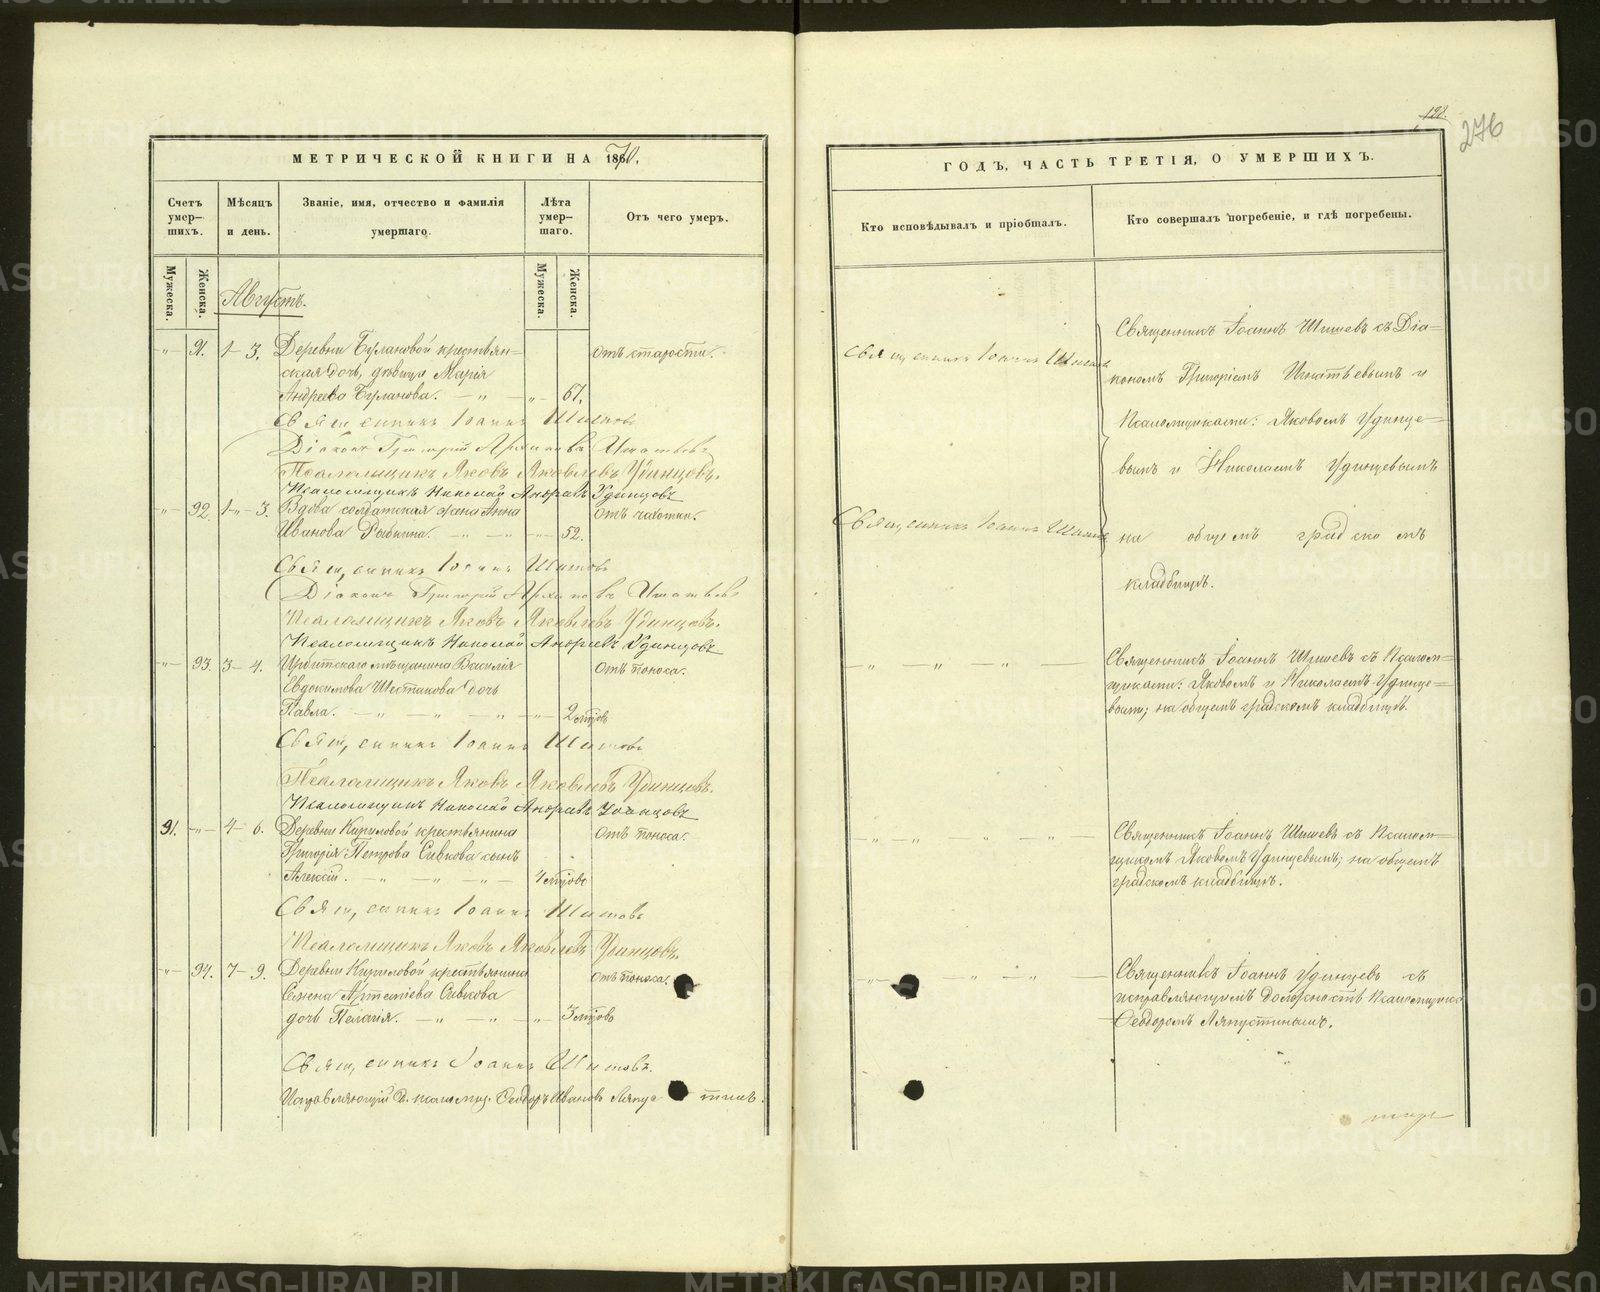 МЕТРИЧЕСКОЙ КНИГИ НА 1870.
Счетъ умер-шихъ.
Мѣсяцъ и день.
Званіе, имя, отчество и фамилія умершаго.
Лѣта умер-шаго.
Отъ чего умеръ.
Мужеска.
Женска.
Мужеска.
Женска.
Августъ.
91. 1 - 3. Деревни Булановой крестьян=
ская дочь, дѣвица Марія
Андреева Буланова. 67. Отъ старости.
Священникъ Іоаннъ Шишевъ
Діаконъ Григорій Игнатьевъ
Псаломщикъ Яковъ Яковлевъ Удинцовъ.
Псаломщикъ Николай Андреевъ Удинцовъ
92. 1 - 3. Вдова солдатская жена Анна Отъ чахотки.
Иванова Рыбкина. 52.
Священникъ Іоаннъ Шишевъ
Діаконъ Григорій Игнатьевъ
Псаломщикъ Яковъ Яковлевъ Удинцовъ.
Псаломщикъ Николай Андреевъ Удинцовъ
93. 3 - 4. Ирбитскаго мѣщанина Василія Отъ поноса.
Евдокимова Шестакова дочь
Павла. 2 мцовъ
Священникъ Іоаннъ Шишевъ
Псаломщикъ Яковъ Яковлевъ Удинцовъ.
Псаломщикъ Николай Андреевъ Удинцовъ
91. 4 - 6. Деревни Кириловой крестьянина Отъ поноса.
Григорія Петрова Сивкова сынъ
Алексій. 4 мцовъ
Священникъ Іоаннъ Шишевъ
Псаломщикъ Яковъ Яковлевъ Удинцовъ.
94. 7 - 9. Деревни Кириловой крестьянина Отъ поноса.
Семена Артеміева Сивкова
дочь Пелагія. 3 мцовъ
Священникъ Іоаннъ Шишевъ.
Исправляющій д. псаломщ. Ѳеодоръ Ивановъ Ляпустинъ.
128.
276
ГОДЪ, ЧАСТЬ ТРЕТІЯ, О УМЕРШИХЪ.
Кто исповѣдывалъ и пріобщалъ.
Кто совершалъ погребеніе, и гдѣ погребены.
Священникъ Іоаннъ Шишевъ
Священникъ Іоаннъ Шишевъ съ Діа=
кономъ Григоріемъ Игнатьевымъ и
Псаломщиками: Яковомъ Удинце=
вымъ и Николаемъ Удинцевымъ
Священникъ Іоаннъ Шишевъ
на общемъ градскомъ
кладбищѣ.
Священникъ Іоаннъ Шишевъ съ Псалом=
щиками: Яковомъ и Николаемъ Удинце=
выми; на общемъ градскомъ кладбищѣ.
Священникъ Іоаннъ Шишевъ съ Псалом=
щикомъ Яковомъ Удинцевымъ; на общемъ
градскомъ кладбищѣ.
Священникъ Іоаннъ Удинцевъ съ
исправляющимъ должность Псаломщика
Ѳеодоромъ Ляпустинымъ.
METRIKI.GASO-URAL.RU